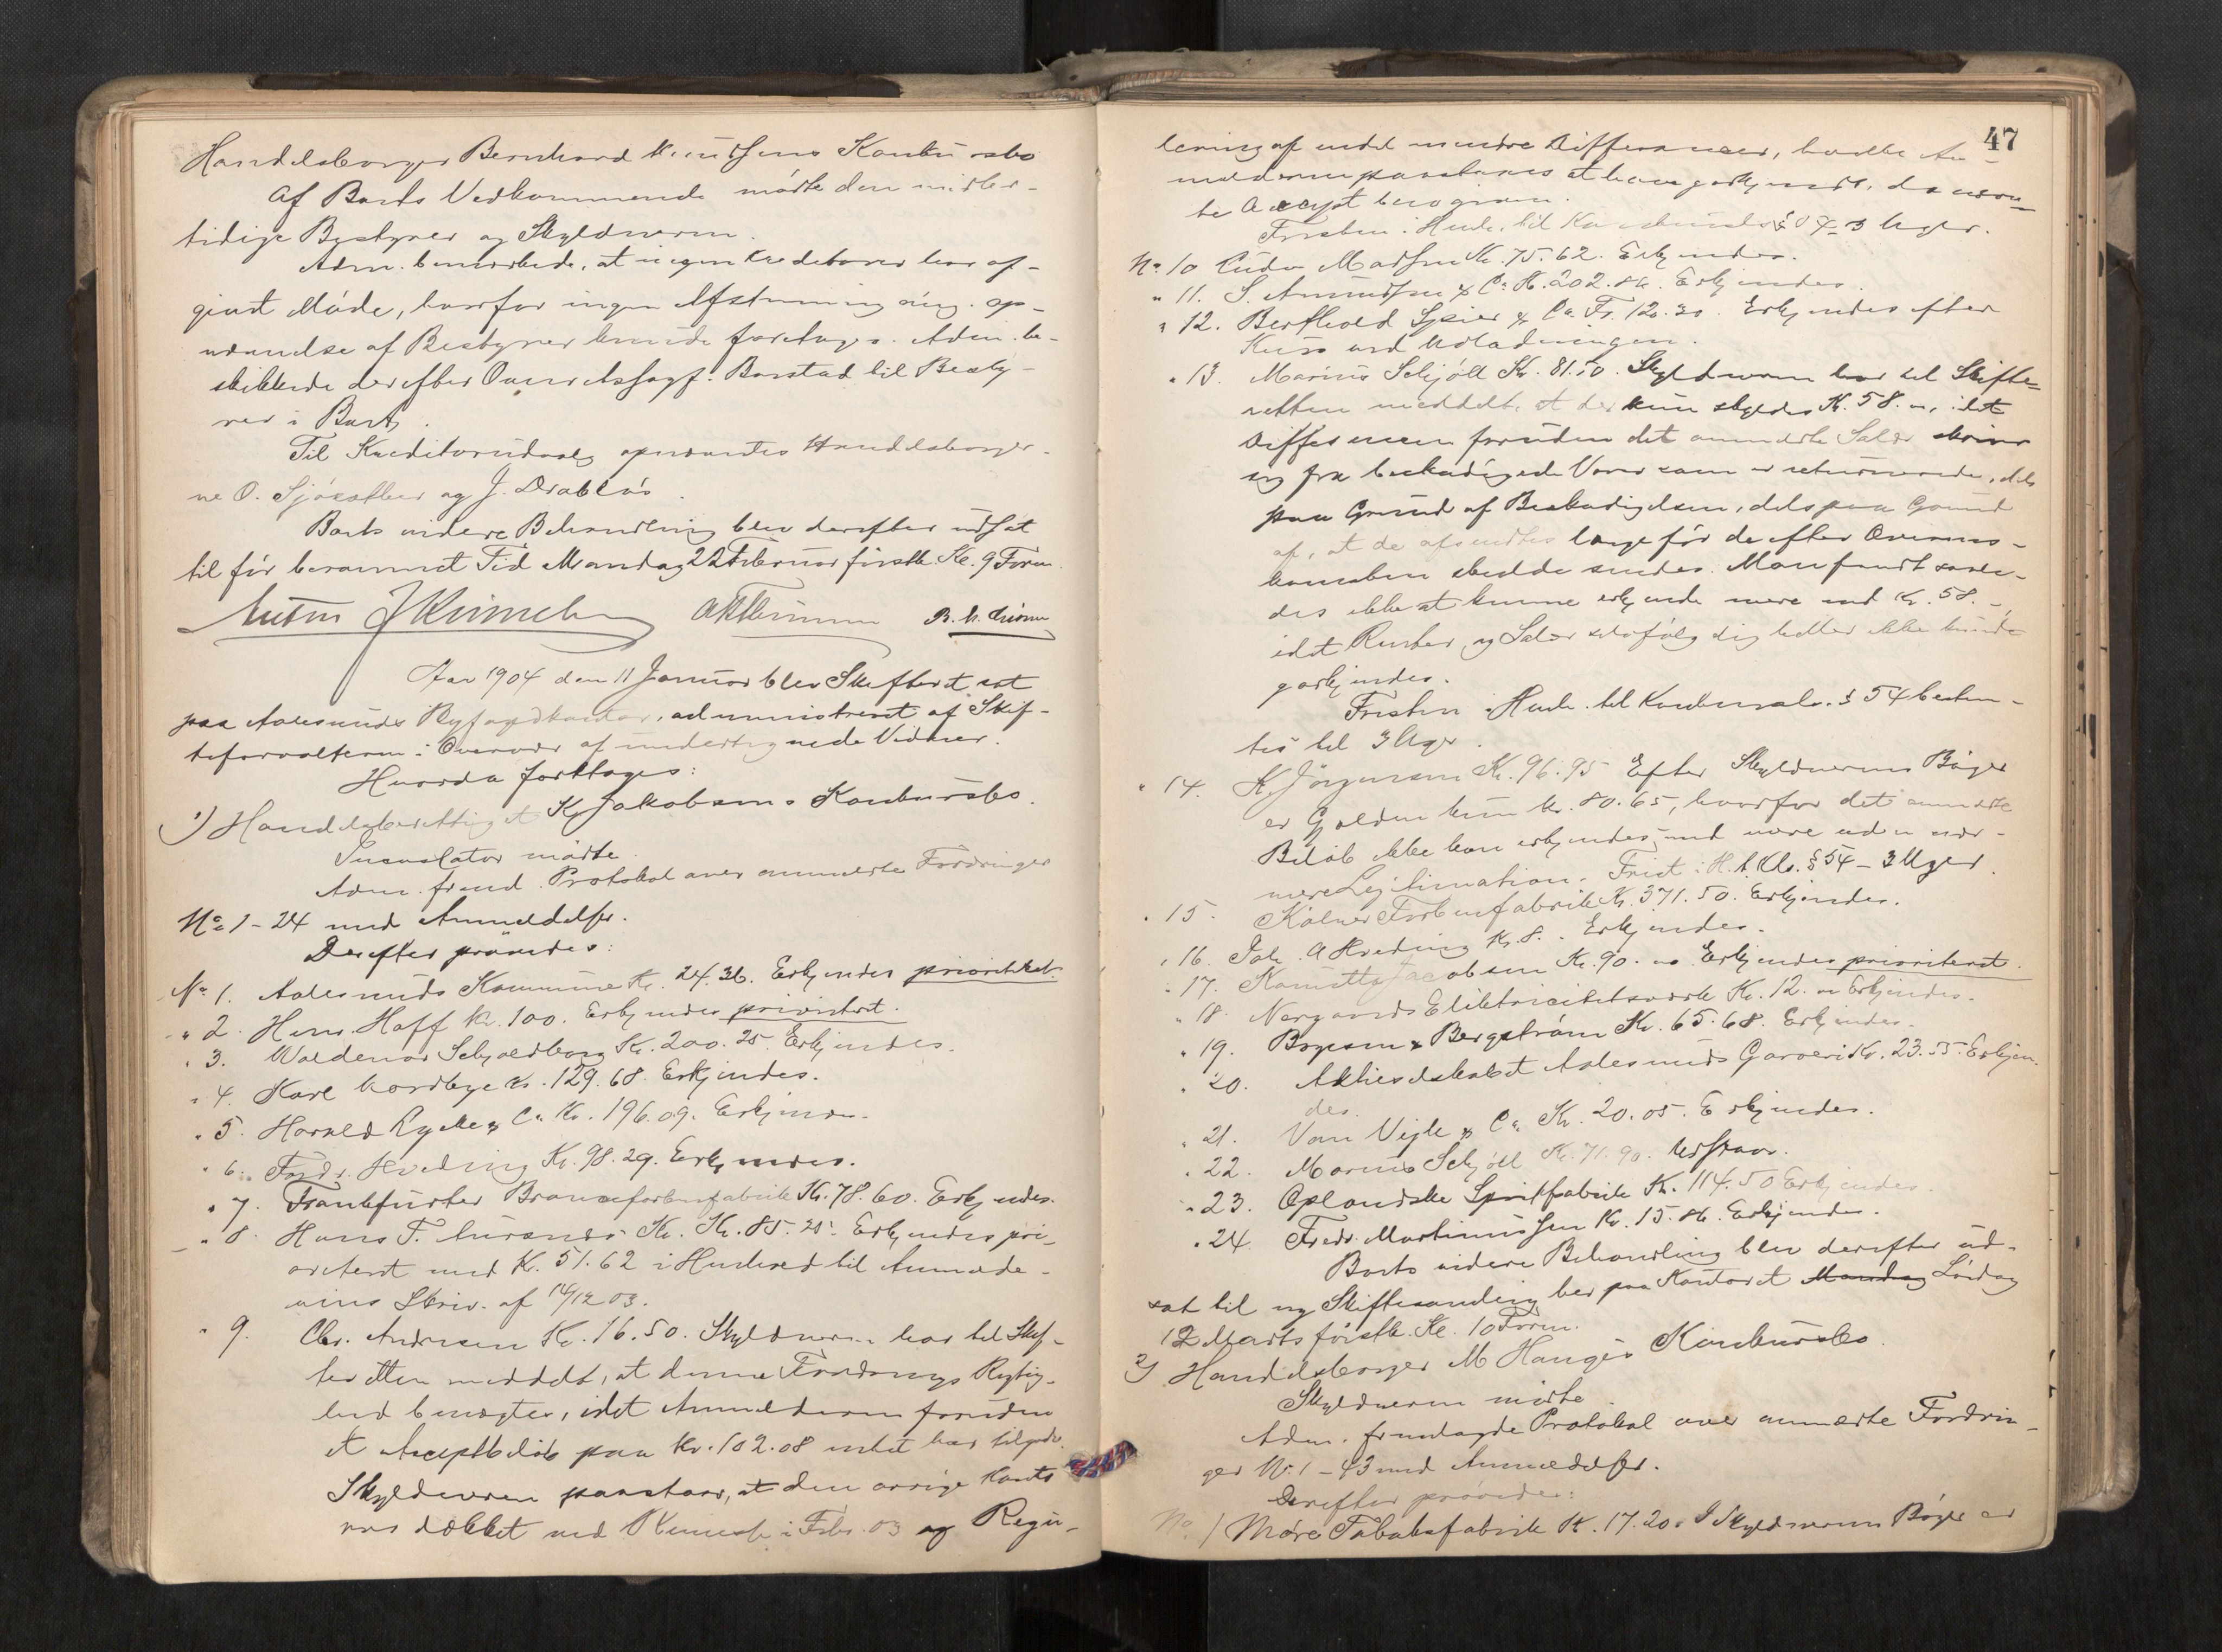 Handelsborger Bernhard Knudsens Konkursbo
Af Boets Vedkommende mødte den midler-
tidige Bestyrer og Skyldneren.
Adm. bemærkede, at ingen Kreditorer har af-
givet Møde, hvorfor ingen Afstemning ang. op-
nævnelse af Bestyrer kunde foretages. Adm. be-
skikkede derefter Overretssagf. Borstad til Besty-
rer i Boet.
Til Kreditorudvalg opnævntes Handelsborger-
ne O. Sjøsæther og J. Drabløs.
Boets videre Behandling blev derefter udsat
til før berammet Tid Mandag 22 Februar førstk. Kl. 9 Form.
Aar 1904 den 11 Januar blev Skifteret sat
paa Aalesunds Byfogdkontor, administreret af Skif-
teforvalteren i Overvær af undertegnede Vidner.
Hvorda foretoges:
1) Handelsberettiget K. Jakobsens Konkursbo.
Incassator mødte.
Adm. freml. Protokol over anmeldte Fordringer
No 1-24 med Anmeldelser.
Derefter prøvedes:
No 1. Aalesunds Kommune Kr. 24.36. Erkjendes prioriteret.
" 2. Hans Hoff Kr. 100. Erkjendes prioriteret.
" 3. Waldemar Schjoldborg Kr. 200.25. Erkjendes.
" 4. Karl Nordbye Kr. 129.68. Erkjendes.
" 5. Harald Lycke & Co Kr. 196.09. Erkjendes.
" 6. Fredr. Hveding Kr. 98.29. Erkjendes.
" 7. Frankfurter Broncefarbenfabrik Kr. 78.60. Erkjendes.
" 8. Hans F. Kr. 85.25. Erkjendes pri-
oriteret med K. 51.62 i Henhold til Anmelde-
rens Skriv. af 14/12 03.
" 9. Chr. Andresen Kr. 16.50. Skyldneren har til Skif-
teretten meddelt, at denne Fordrings Rigtig-
hed benægtes, idet Anmelderen foruden
et Acceptbeløb paa Kr. 102.08 intet har tilgode.
Skyldneren paastaar, at den øvrige Konto
var dækket ved Rimesse i Febr. 03 og Regu-
47
lering af endel mindre Differancer, hvilke An-
melderen paastaaes at have godkjendt, da nævn-
te Accept blev given.
Fristen i Henh. til Konkurslov § 54 3 Uger.
No 10 Ludv. Madsen Kr. 75.62. Erkjendes.
" 11. S. Amundsen & Co Kr. 202.86. Erkjendes.
" 12. Berthold Spier & Co Fr. 120.30. Erkjendes efter
Kurs ved Udlodningen.
" 13. Marius Schjøll Kr. 81.50. Skyldneren har til Skifte-
retten meddelt, at der kun skyldes Kr. 58.-, idet
Differencen foruden det anmeldte Salær skriver
sig fra beskadigede Varer som er returnerede, dels
paa Grund af Beskadigelsen, dels paa Grund
af, at de afsendtes længe før de efter Overens-
komsten skulde sendes. Man fandt saale-
des ikke at kunne erkjende mere end Kr. 58.-,
idet Renter og Salær selvfølgelig heller ikke kunde
godkjendes.
Fristen i Henh. til Konkurslov. § 54 bestem-
tes til 3 Uger.
" 14. K. Jørgensen Kr. 96.95 Efter Skyldnerens Bøger
er Gjælden kun Kr. 80.65, hvorfor det anmeldte
Beløb ikke kan erkjendes med mere uden nær-
mere Legitimation. Frist i H. t. Kl. § 54 - 3 Uger.
" 15. Kölner Farbenfabrik Kr. 371.50. Erkjendes.
" 16. Joh. A Hveding Kr. 8.-. Erkjendes.
" 17. Jacobsen Kr. 90.- Erkjendes prioriteret.
" 18. Nørgaards Elektricitetsværk Kr. 12.- Erkjendes.
" 19. Bryesen & Bergstrøm Kr. 65.68. Erkjendes.
" 20. Aktieselskabet Aalesunds Garveri Kr. 23.55. Erkjen-
des.
" 21. Van Vijle & Co Kr. 20.05. Erkjendes.
" 22. Marius Schjøll Kr. 71.90. Udgaar.
" 23. Oplandske Spritfabrik Kr. 114.50 Erkjendes.
" 24. Fredr. Martinussen Kr. 15.86. Erkjendes.
Boets videre Behandling blev derefter ud-
sat til ny Skiftesamling her paa Kontoret Mandag Lørdag
12 Marts førstk. Kl. 10 Form.
2) Handelsborger M Hauges Konkursbo.
Skyldneren mødte.
Adm. fremlagde Protokol over anmeldte Fordrin-
ger No 1-43 med Anmeldelser.
Derefter prøvedes:
No. 1 Møre Tobaksfabrik Kr. 17.20. I Skyldnerens Bøger er